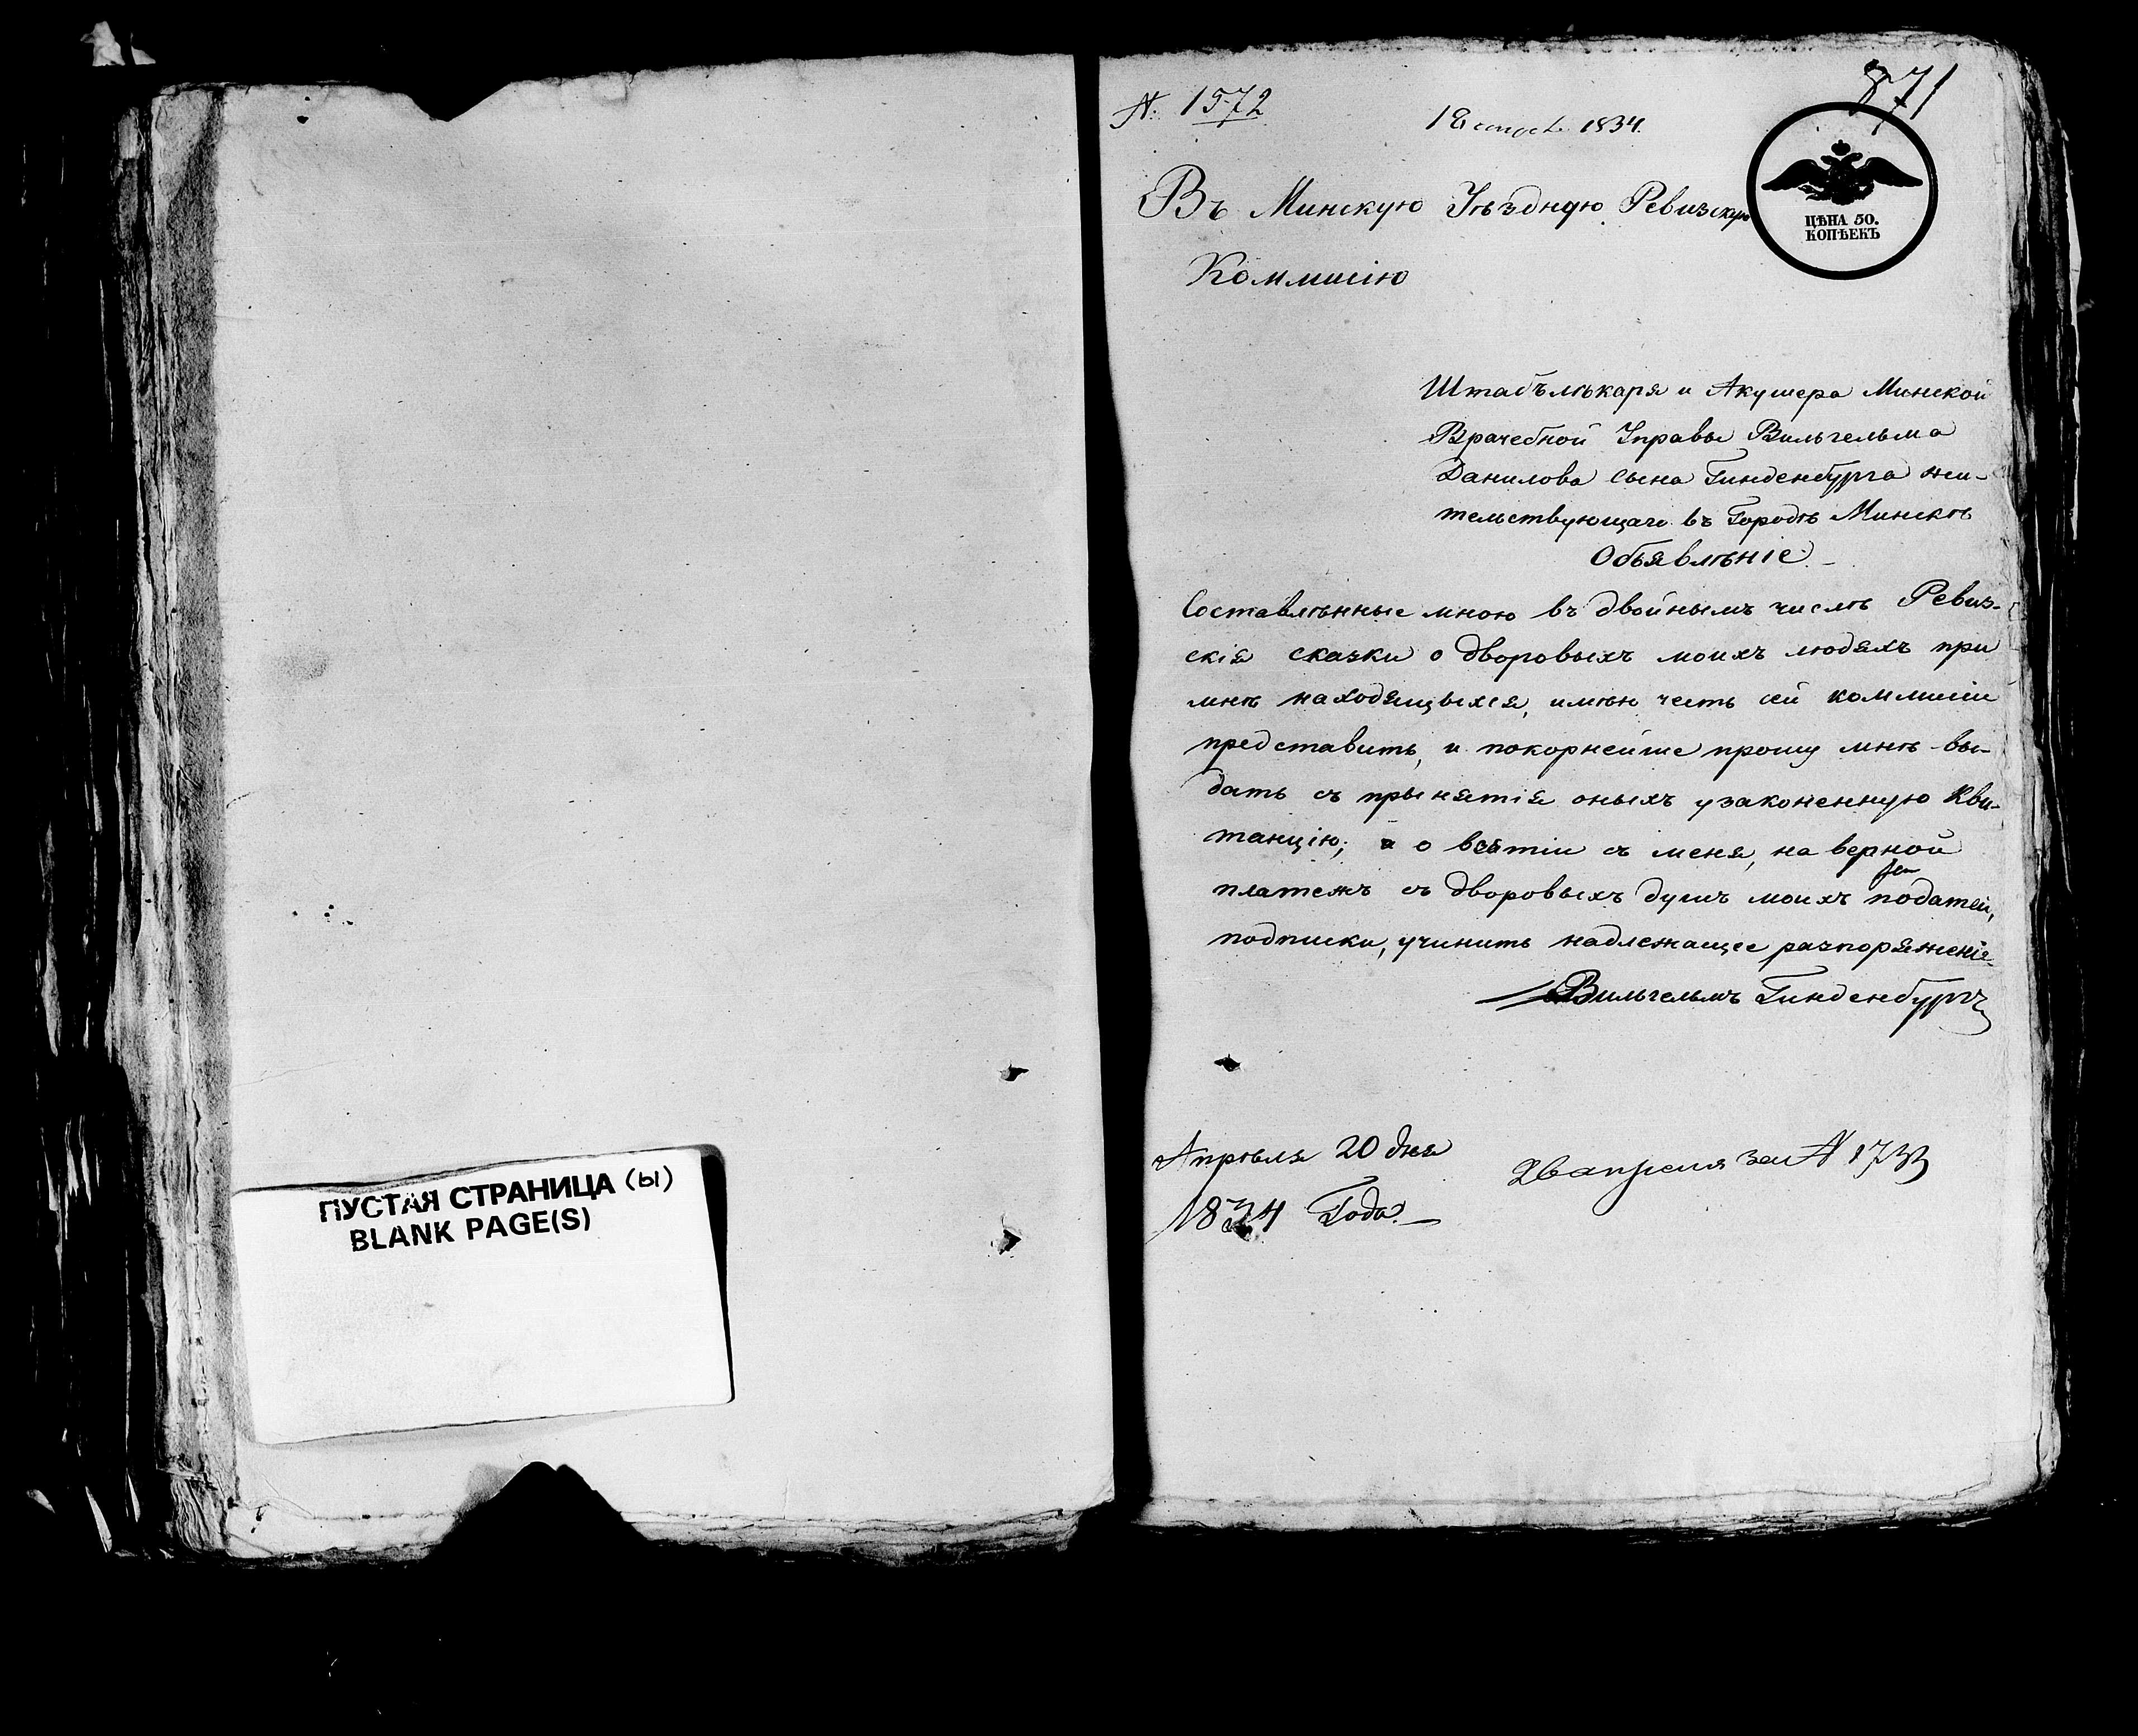 ПУСТАЯ СТРАНИЦА (Ы)
BLANK PAGE(S)
N. 1572
1834.
871
ЦѢНА 50.
КОПѢЕКЪ
Въ Минскую Уѣздную Ревизскую
Коммисію
Штабълѣкаря и Акушера Минской
Врачебной Управы Вильгельма
Данилова сына Гинденбурга жи-
тельствующаго въ Городѣ Минскѣ
Объявлѣніе.
Составлѣнные мною въ двойнымъ числѣ Ревиз-
скія сказки о дворовыхъ моихъ людяхъ при
мнѣ находящыхся, имѣю честь сей коммисіи
представить, и покорнейше прошу мнѣ вы-
дать съ прынятія оныхъ узаконенную Кви-
танцію; а о взятіи съ меня, на верной
платежъ съ дворовыхъ душъ моихъ податей,
подписки, учинить надлежащее разпоряженіе.
Вильгельмъ Гинденбургъ
Апрѣля 20 дня
1834 Года.
апреля за N 1733